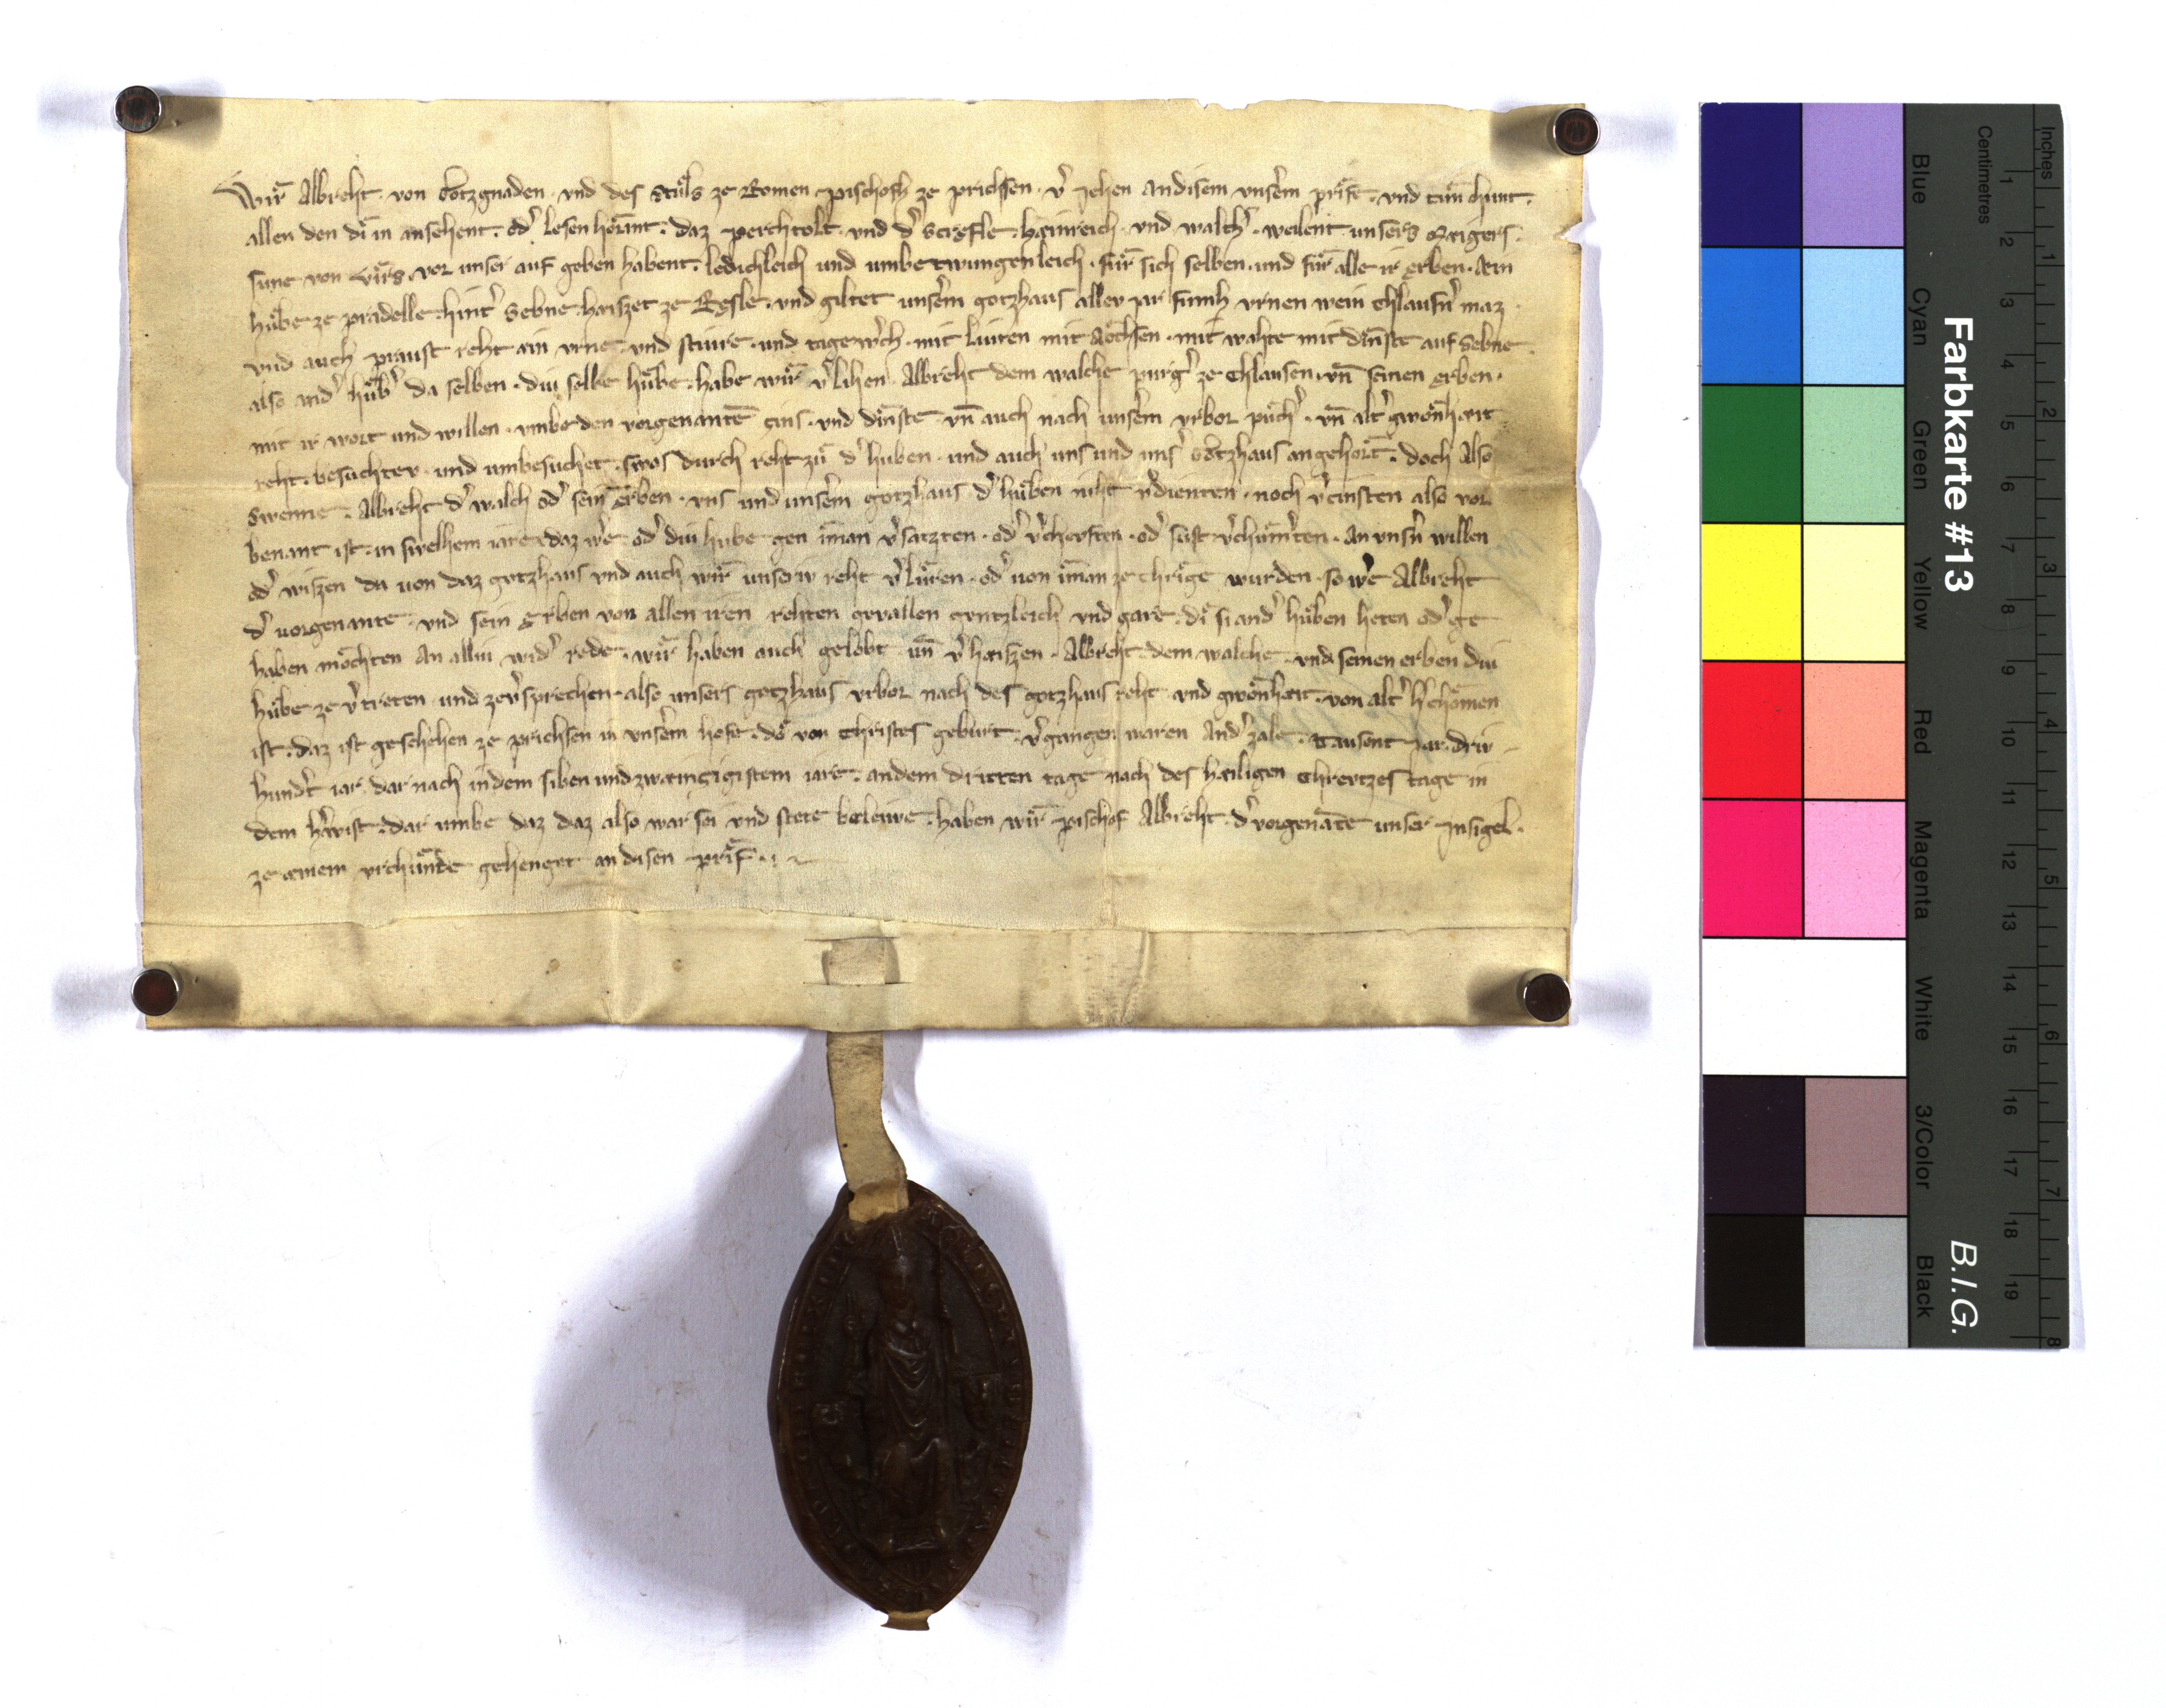 Wir Albreht · von Gotzgnaden · vnd des Stůls ze Romen · pischofh ze prichsen · v̾ Jehen andisem vnserm prife · vnd tůn chunt ·
allen den di in ansehent · od̾ lesen horant · daz perchtolt · vnd d̾ · hainreich · vnd walch̾ · weilent unsers Maigers ·
sune von · vor unser auf geben habent · ledichleich und umbetwungenleich · für sich selben · und für alle ir erben · Ain
hůbe ze pradelle · hint̾ Sebne · haiszet ze Resle · vnd giltet unserm gotzhaus aller iar fumh vrnen wein Chlausn̾ maz ·
vnd auch praust reht ain vrne · vnd stiure · und tagew̾ch · mit luiten mit Aochsen · mit wahte mit dinste auf Sebne ·
also and̾ hůb̾ da selben · diu selbe hůbe · habe wir v̾lihen · Albreht dem walche purg̾ ze Chlausen · vn̄ seinen erben ·
mit ir wort und willen · vmbe den vorgenantē zins · vnd dinste · vn̄ auch nach unserm vrbor půch̾ · vn̄ alt̾ gwonhait
reht · besuchter · und umbesuchet · swos durch reht zů d̾ huben · und auch uns und uns̾ Gotzhaus angehort · doch Also
Swenne · Albreht d̾ walch od̾ sein erben · vns und unserm gotzhaus d̾ hůben niht v̾dienten · noch v̾cinsten also vor
benant ist · in swelhem iare daz w̾e · od̾ diu hube gen iman v̾satzten · od̾ v̾chauften · od̾ sust v̾chům̾ten · An vnsn̾ willen
od̾ wiszen da von daz gotzhaus vnd auch wir unserw reht v̾lüren · od̾ von iman ze chrige wurden · so w̾e Albreht
d̾ vorgenante · vnd sein Erben von allen iren rehten gevallen gentzleich vnd gare · di si and̾ hůben heten od̾ ge
haben mochten An alliu wid̾ rede · wir haben auch gelobt · un̄ v̾haiszen · Albreht dem walche · vnd seinen erben diu
hůbe ze v̾treten · und zev̾sprechen · also unsers gotzhaus vrbor nach des gotzhaus reht · vnd gwonhait · von alt̾ h̾chomen
ist · daz ist geschehen ze prichsen in vnserm hofe · do von Christes geburt · v̾gangen waren And̾ zale · tausent Jar · driv
hund̾t iar · dar nach indem siben und zwainzigistem iare · andem dritten tage nach des hailigen Chrevtzes tage in
dem h̾wist · dar umbe daz daz also war sei vnd stete beleiwe · haben wir pischof Albreht · d̾ vorgenāte unser Insigel ·
ze ainem vrchunde gehenget an disen prif ·
Farbkarte #13
B.I.G.
Inches
Centimetres
1 2 3 4 5 6 7 8 9 10 11 12 13 14 15 16 17 18 19
1 2 3 4 5 6 7 8
Blue
Cyan
Green
Yellow
Red
Magenta
White
3/Color
Black